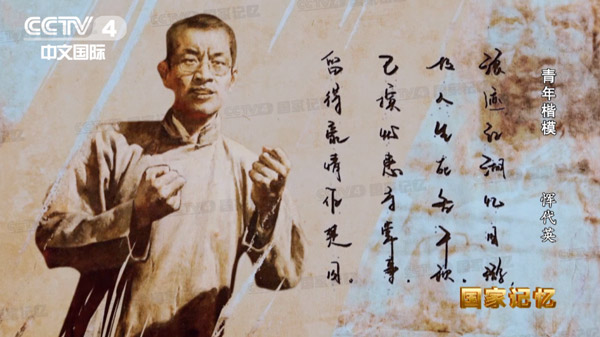 CCTV 4
中文国际
青年楷模 恽代英
浪迹江湖忆旧游,
故人生死各千秋。
已摈忧患寻常事,
留得豪情作楚囚。
国家记忆